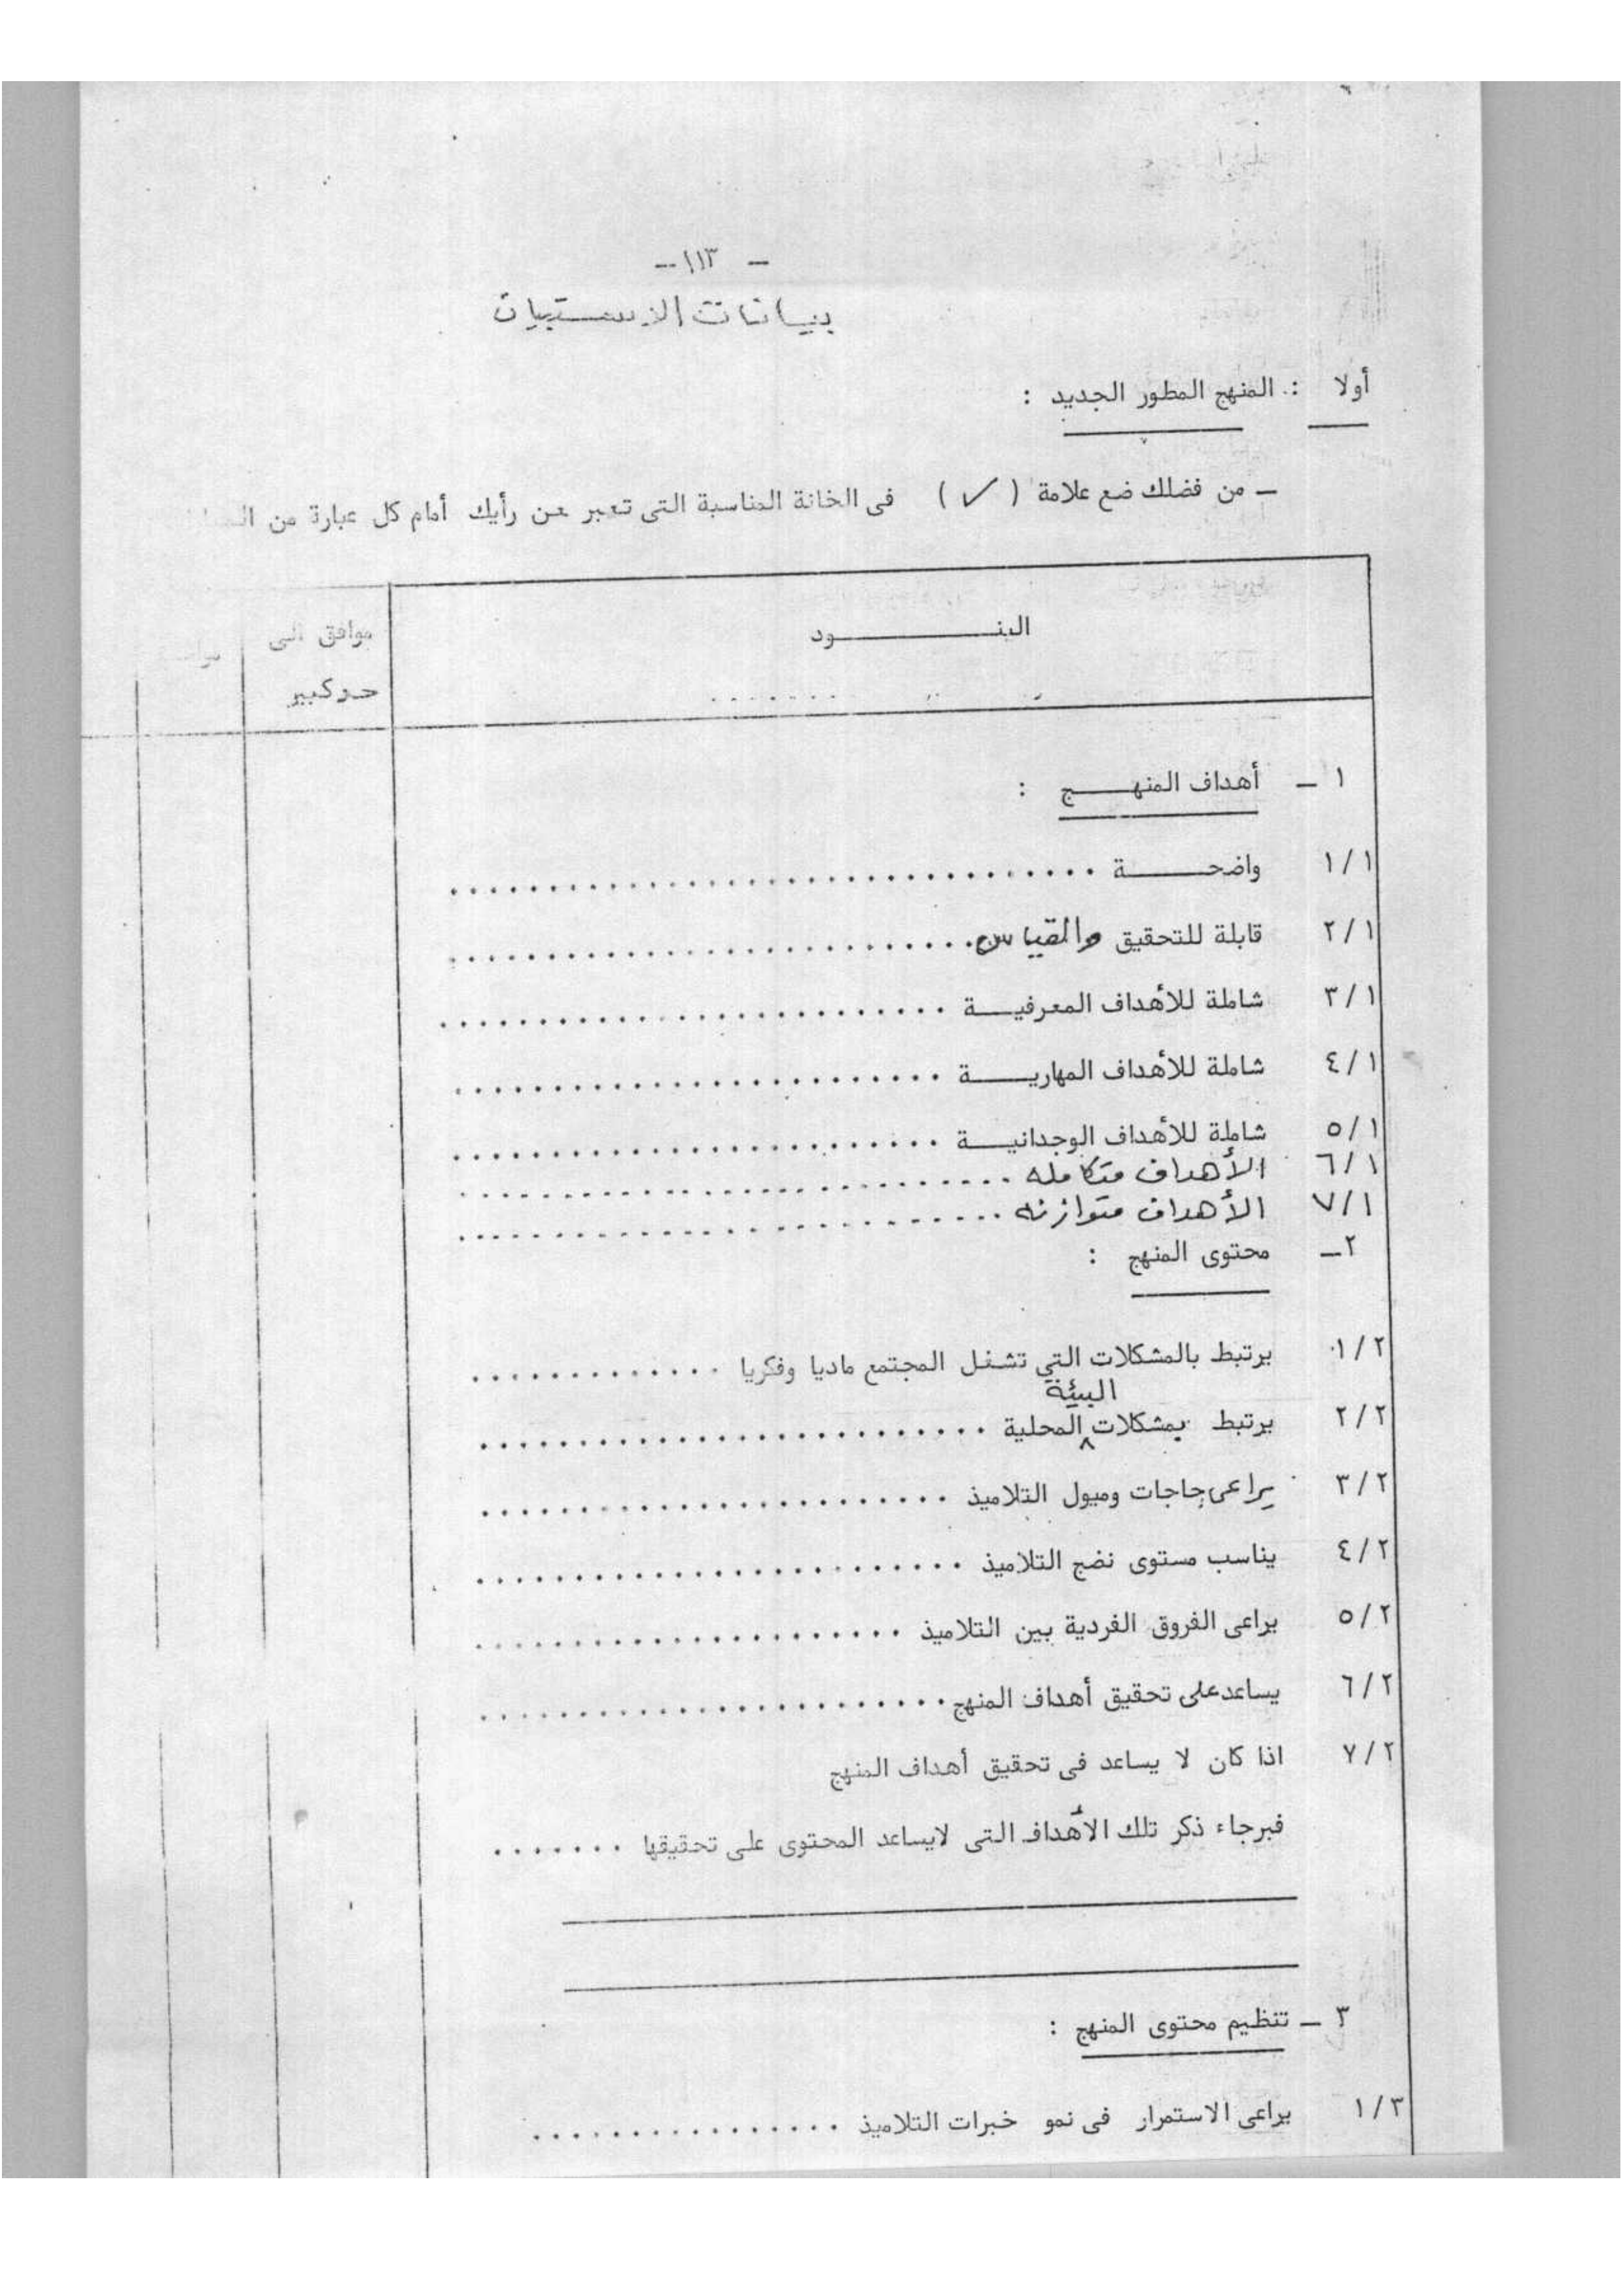 - ١١٣ -
بيانات الاستبيان
أولا : المنهج المطور الجديد :
ــ من فضلك ضع علامة ( ✓ ) فى الخانة المناسبة التى تعبر عن رأيك أمام كل عبارة من
البنــــــــود
موافق الى
حد كبير
١ ــ أهداف المنهــــج :
١/١ واضحـــــة ..................................
٢/١ قابلة للتحقيق والقياس ..........................
٣/١ شاملة للأهداف المعرفيــــة ..........................
٤/١ شاملة للأهداف المهاريــــة .........................
٥/١ شاملة للأهداف الوجدانيــــة .........................
٦/١ الأهداف متكامله ..........................
٧/١ الأهداف متوازنه ..........................
٢ــ محتوى المنهج :
١/٢ يرتبط بالمشكلات التي تشغل المجتمع ماديا وفكريا .............
٢/٢ يرتبط بمشكلات البيئة المحلية ..........................
٣/٢ يراعى حاجات وميول التلاميذ ........................
٤/٢ يناسب مستوى نضج التلاميذ .........................
٥/٢ يراعى الفروق الفردية بين التلاميذ ......................
٦/٢ يساعد على تحقيق أهداف المنهج ........................
٧/٢ اذا كان لا يساعد فى تحقيق أهداف المنهج
فبرجاء ذكر تلك الأهداف التى لايساعد المحتوى على تحقيقها .......
٣ ــ تنظيم محتوى المنهج :
١/٣ يراعى الاستمرار فى نمو خبرات التلاميذ ................